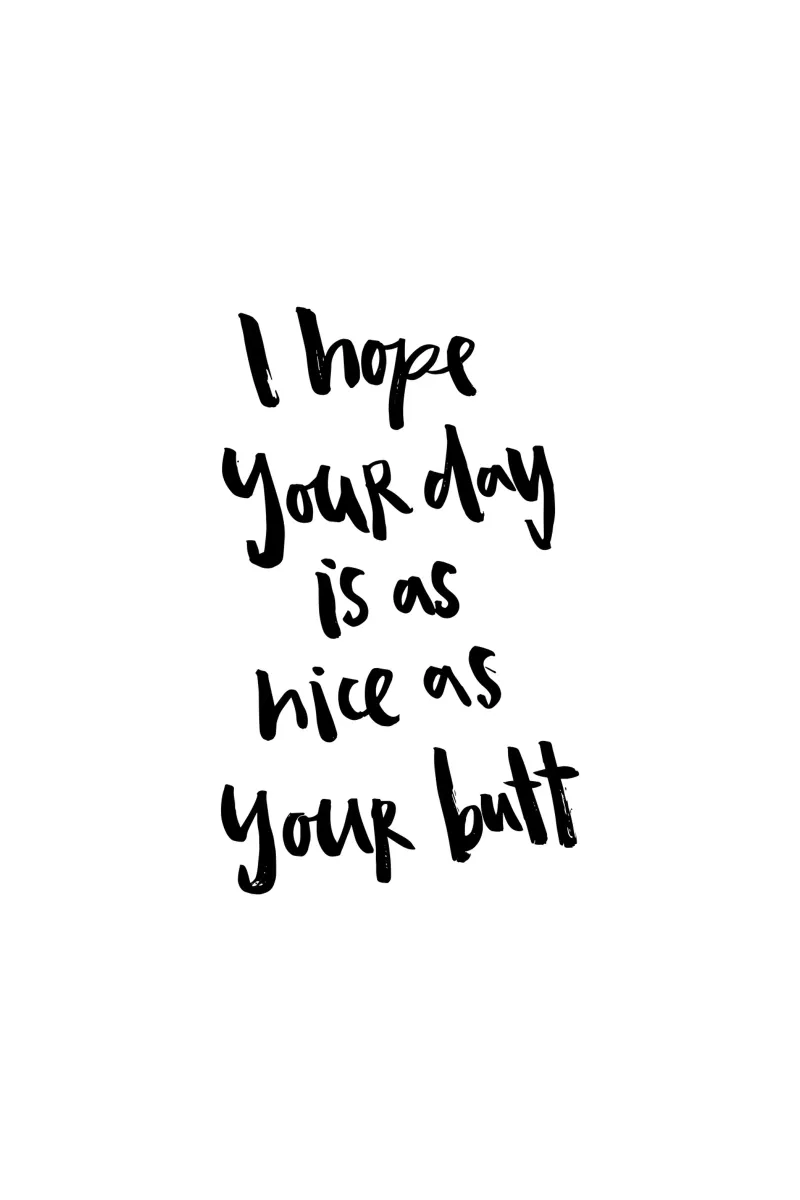 I hope
your day
is as
nice as
your butt